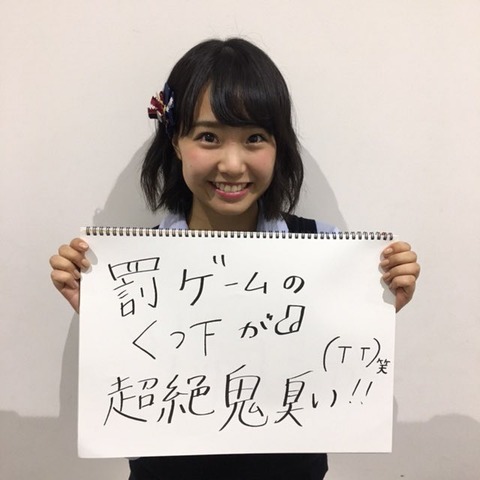 罰ゲームの
くつ下が
超絶鬼臭い!!
(T T)笑